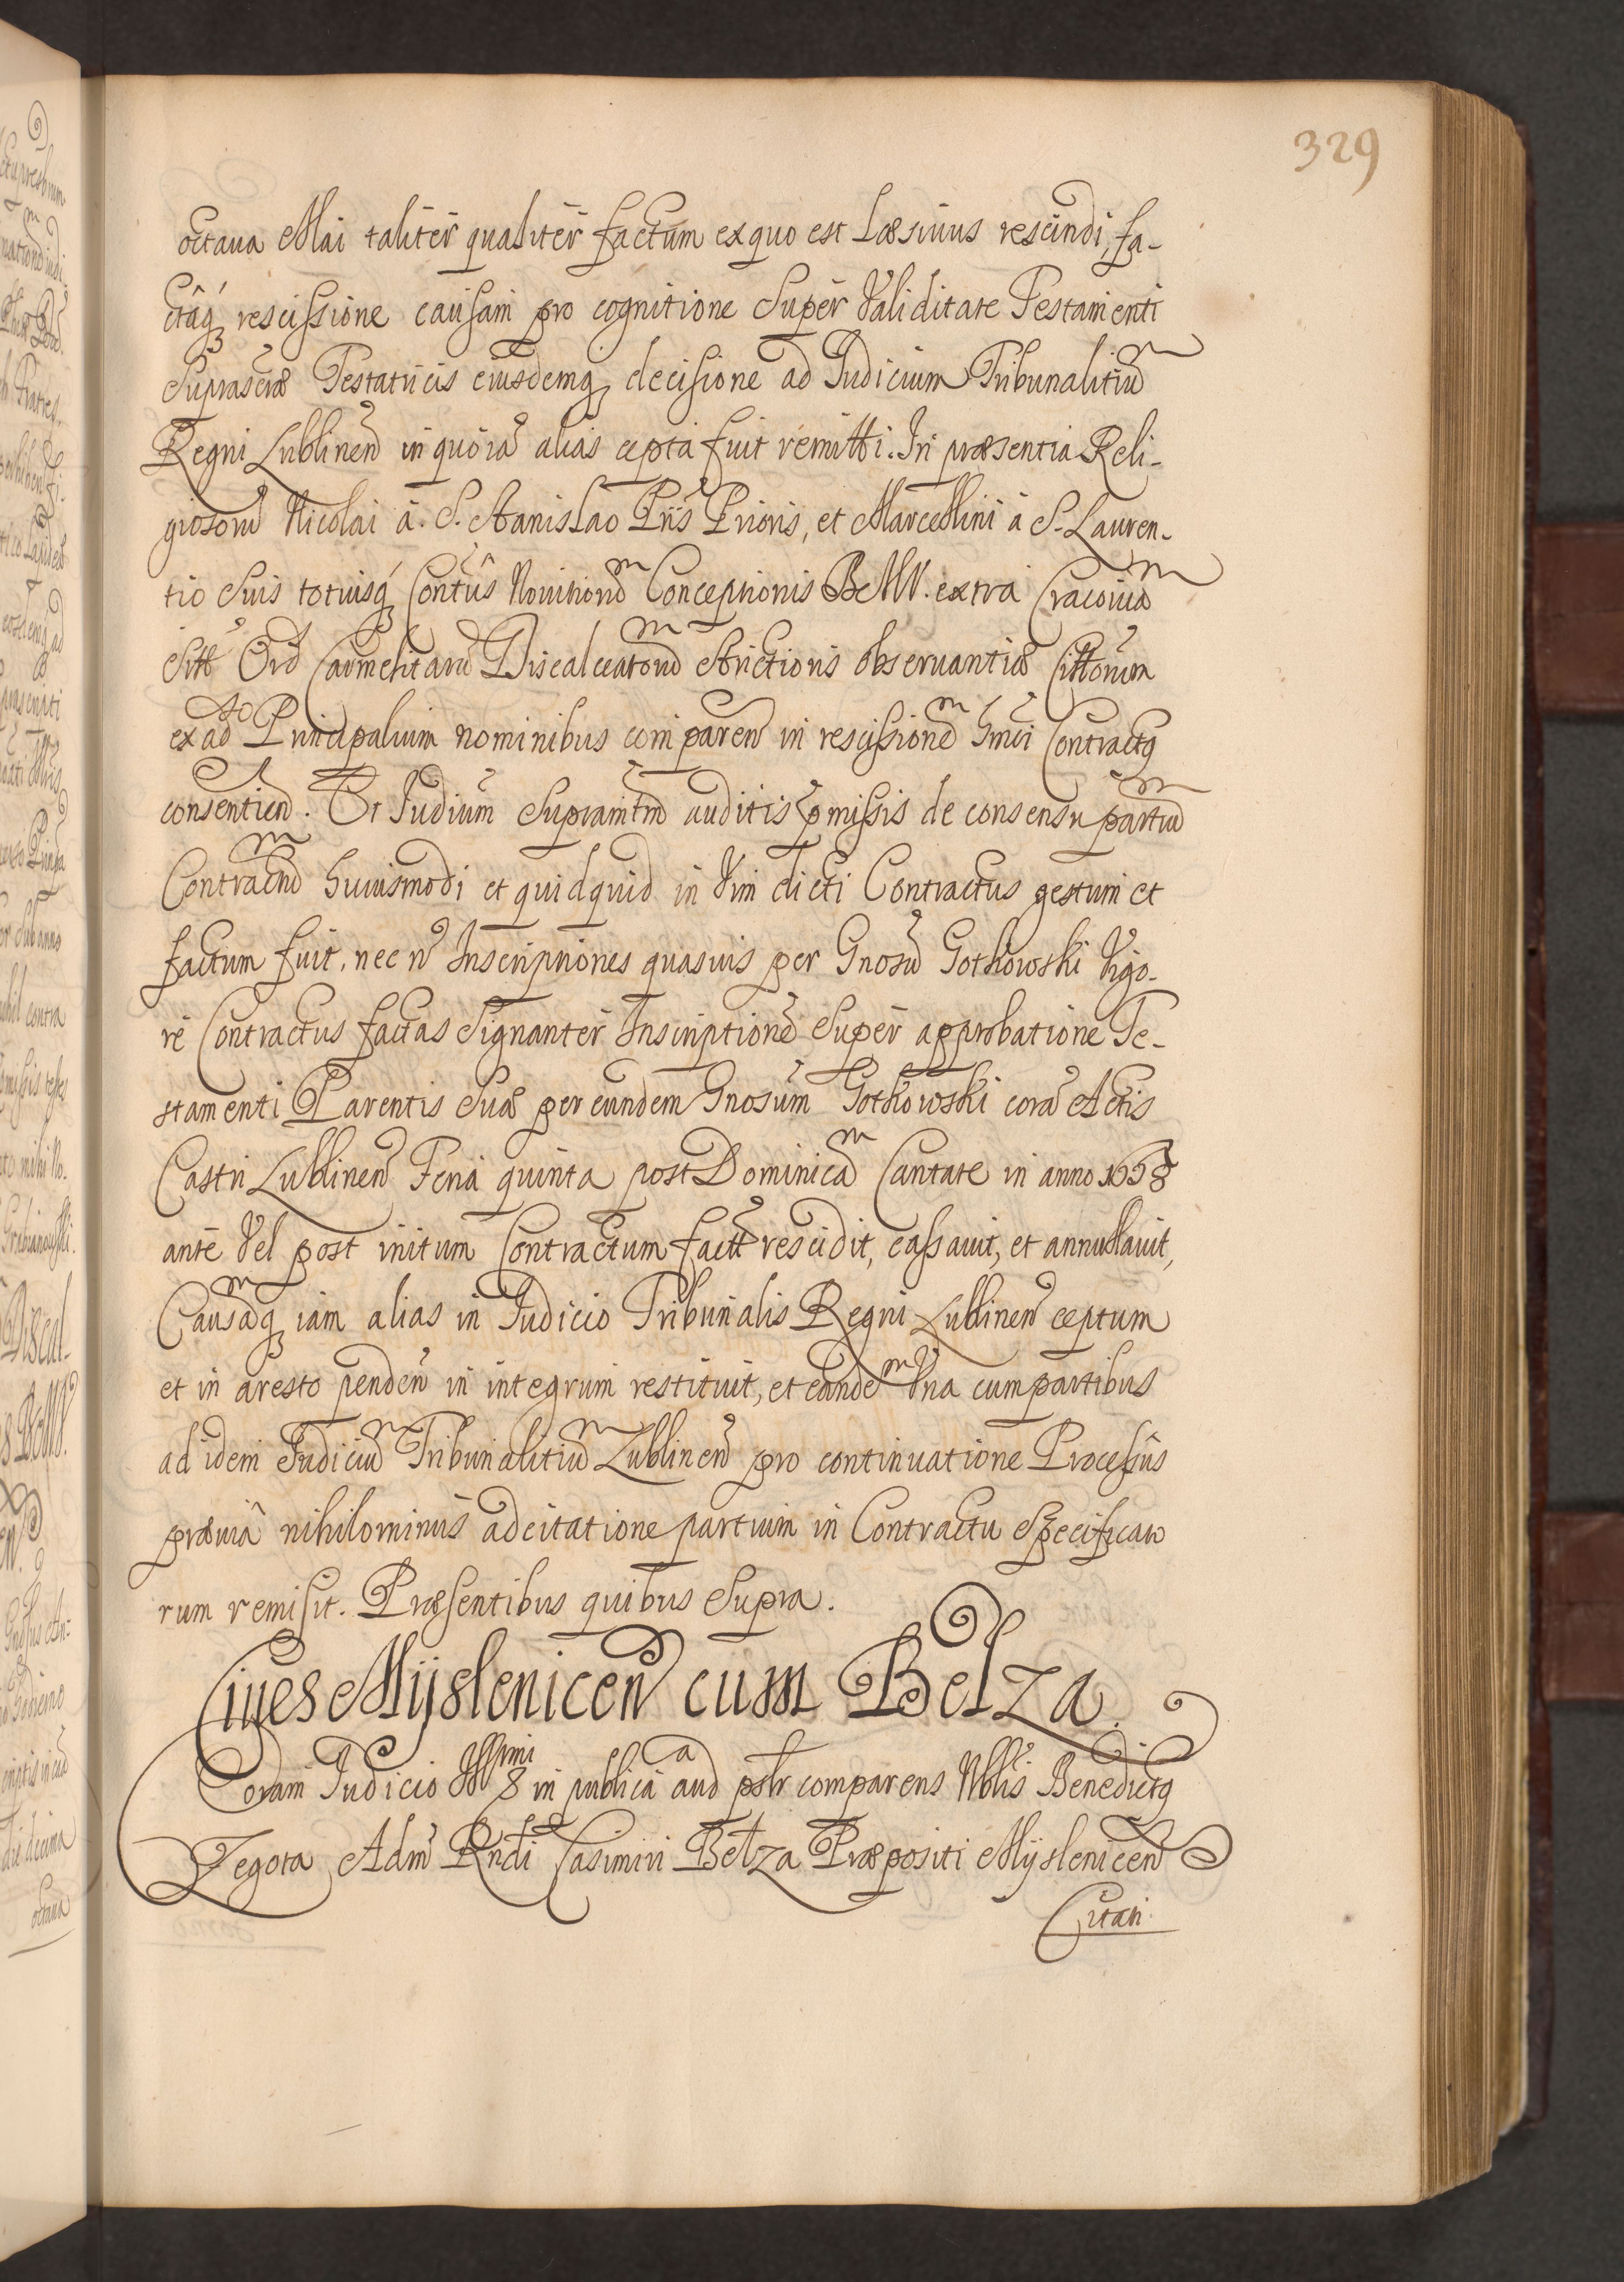 329
octaua Mai taliter qualiter factum ex quo est Læsiuus rescindi, fa-
ctâq́ꝫ rescissione causam pro cognitione Super Validitate Testamenti
Suprascræ Testatricis eiusdemqꝫ decisione ad Judicium Tribunalitiũ
Regni Lublineñ in quo iã alias cepta fuit remitti. In præsentia Reli-
giosorũ Nicolai à. S. Stanislao Priis Prioris, et Marcellini à S. Lauren-
tio Suis totiusq́ꝫ Contûs Nouitiorũ Conceptionis BMV. extra Cracouiã
Sitt Ord Carmelitarũ Discalceatorũ Strictioris obseruantiæ Cittorum
ex adso Principalium nominibus compareñ in rescissionẽ hmoi Contractꝰ
consentieñ. Et Judium Supramtm auditis p̃missis de consensu partiũ
Contractũ huiusmodi et quidquid in Vim dicti Contractus gestum et
factum fuit, nec ñ Inscriptiones quasuis per Gnosũ Gotkowski Vigo-
re Contractus factas Signanter Inscriptionẽ Super approbatione Te-
stamenti Parentis Suæ per eundem Gnosum Gotkowski corã Actis
Castri Lublineñ Feria quinta post Dominicã Cantate in anno 1658
ante Vel post initum Contractum factã rescidit, cassauit, et annullauit,
Causãqꝫ iam alias in Judicio Tribunalis Regni Lublineñ ceptum
et in aresto pendeñ in integrum restituit, et eandẽ Vna cum partibus
ad idem Judiciũ Tribunalitiũ Lublineñ pro continuatione Processûs
præuiâ nihilominus adcitatione partium in Contractu Specificato
rum remisit. Præsentibus quibus Supra.
Ciues Mijsleniceñ cum Bełza.
Coram Judicio in publica aud pslr comparens Nblis Benedictꝰ
Zegota Adm Rndi Casimiri Bełza Præpositi Mijsleniceñ
Citati